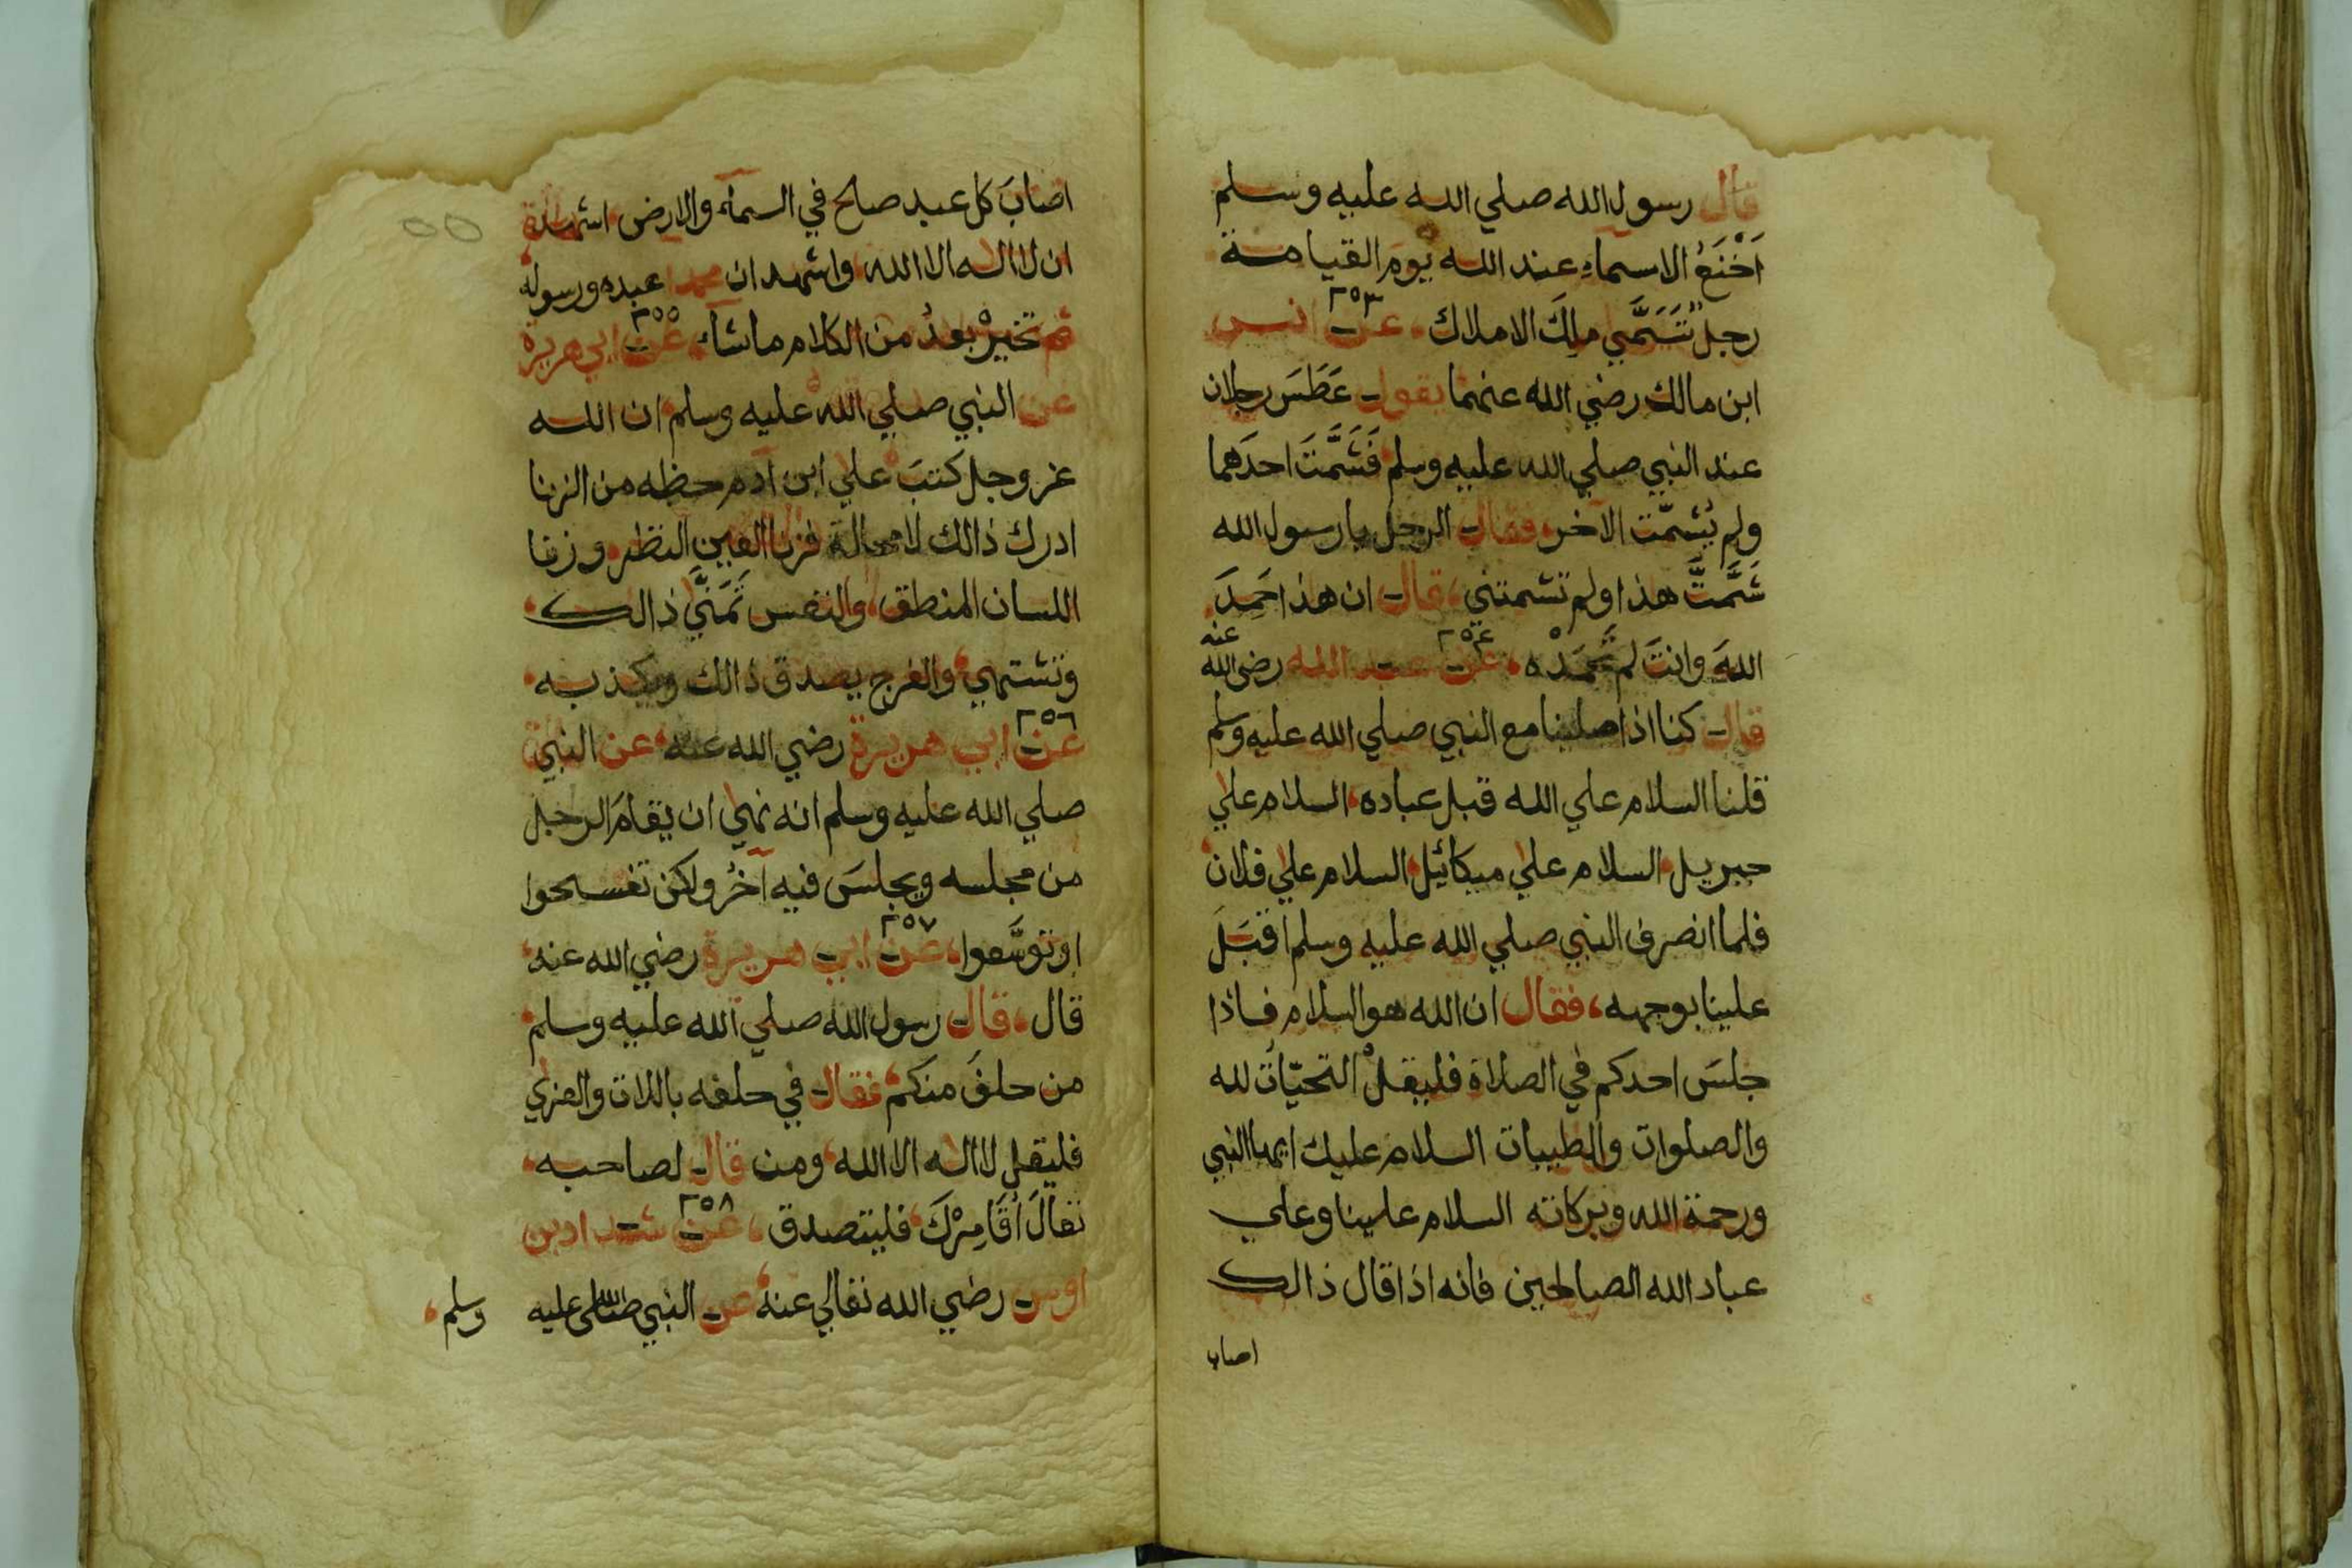 قال رسول الله صلي الله عليه وسلم
اَخْنَعُ الاسماءِ عند الله يومَ القيامة
رجلٌ تَسَمَّي مالِكَ الاملاك، عن ٢٥٣ انس
ابن مالك رضي الله عنهما يقول عَطَسَ رجلان
عند النبي صلي الله عليه وسلم فَشَمَّتَ احدَهما
ولم يُشمّت الآخر، فقال الرجل يا رسول الله
شَمَّتَّ هذا ولم تشمتني، قال ان هذا حَمِدَ
اللهَ وانتَ لم تَحْمَدْه، عن ٢٥٤ عبد الله رضي الله عنه
قال كنا اذا صلينا مع النبي صلي الله عليه وسلم
قلنا السلام علي الله قبل عباده، السلام علي
جبريل، السلام علي ميكائيل، السلام علي فلان
فلما انصرف النبي صلي الله عليه وسلم اقبَلَ
علينا بوجهه، فقال ان الله هو السلام فاذا
جلسَ احدكم في الصلاة فليقلْ التحيّاتُ لله
والصلوات والطيبات السلام عليك ايها النبي
ورحمة الله وبركاته السلام علينا وعلي
عباد الله الصالحين فانه اذا قال ذالك
اصاب
اصابَ كل عبد صالح في السماء والارض، اشهد
ان لا اله الا الله، واشهد ان محمدا عبده ورسوله
ثم تخيرْ بعدُ من الكلام ما شآء، عن ٢٥٥ ابي هريرة
عن النبي صلي الله عليه وسلم ان الله
عز وجل كتبَ علي ابن آدم حظه من الزنا
ادرك ذالك لا محالة فزنا العين النظر، وزنا
اللسان المنطق، والنفس تَمَنَّي ذالك
وتشتهي، والفرج يصدق ذالك ويكذبه
عن ٢٥٦ ابي هريرة رضي الله عنه، عن النبي
صلي الله عليه وسلم انه نهي ان يقامَ الرجل
من مجلسه ويجلسَ فيه آخرُ ولكن تفسحوا
او توسَّعوا، عن ٢٥٧ ابي هريرة رضي الله عنه،
قال، قال رسول الله صلي الله عليه وسلم
من حلفَ منكم، فقال في حلفه باللات والعزي
فليقل لا اله الا الله، ومن قال لصاحبه،
تعالَ اُقَامِرْكَ، فليتصدق، عن ٢٥٨ شداد بن
اوس رضي الله تعالي عنه، عن النبي صلى الله عليه وسلم،